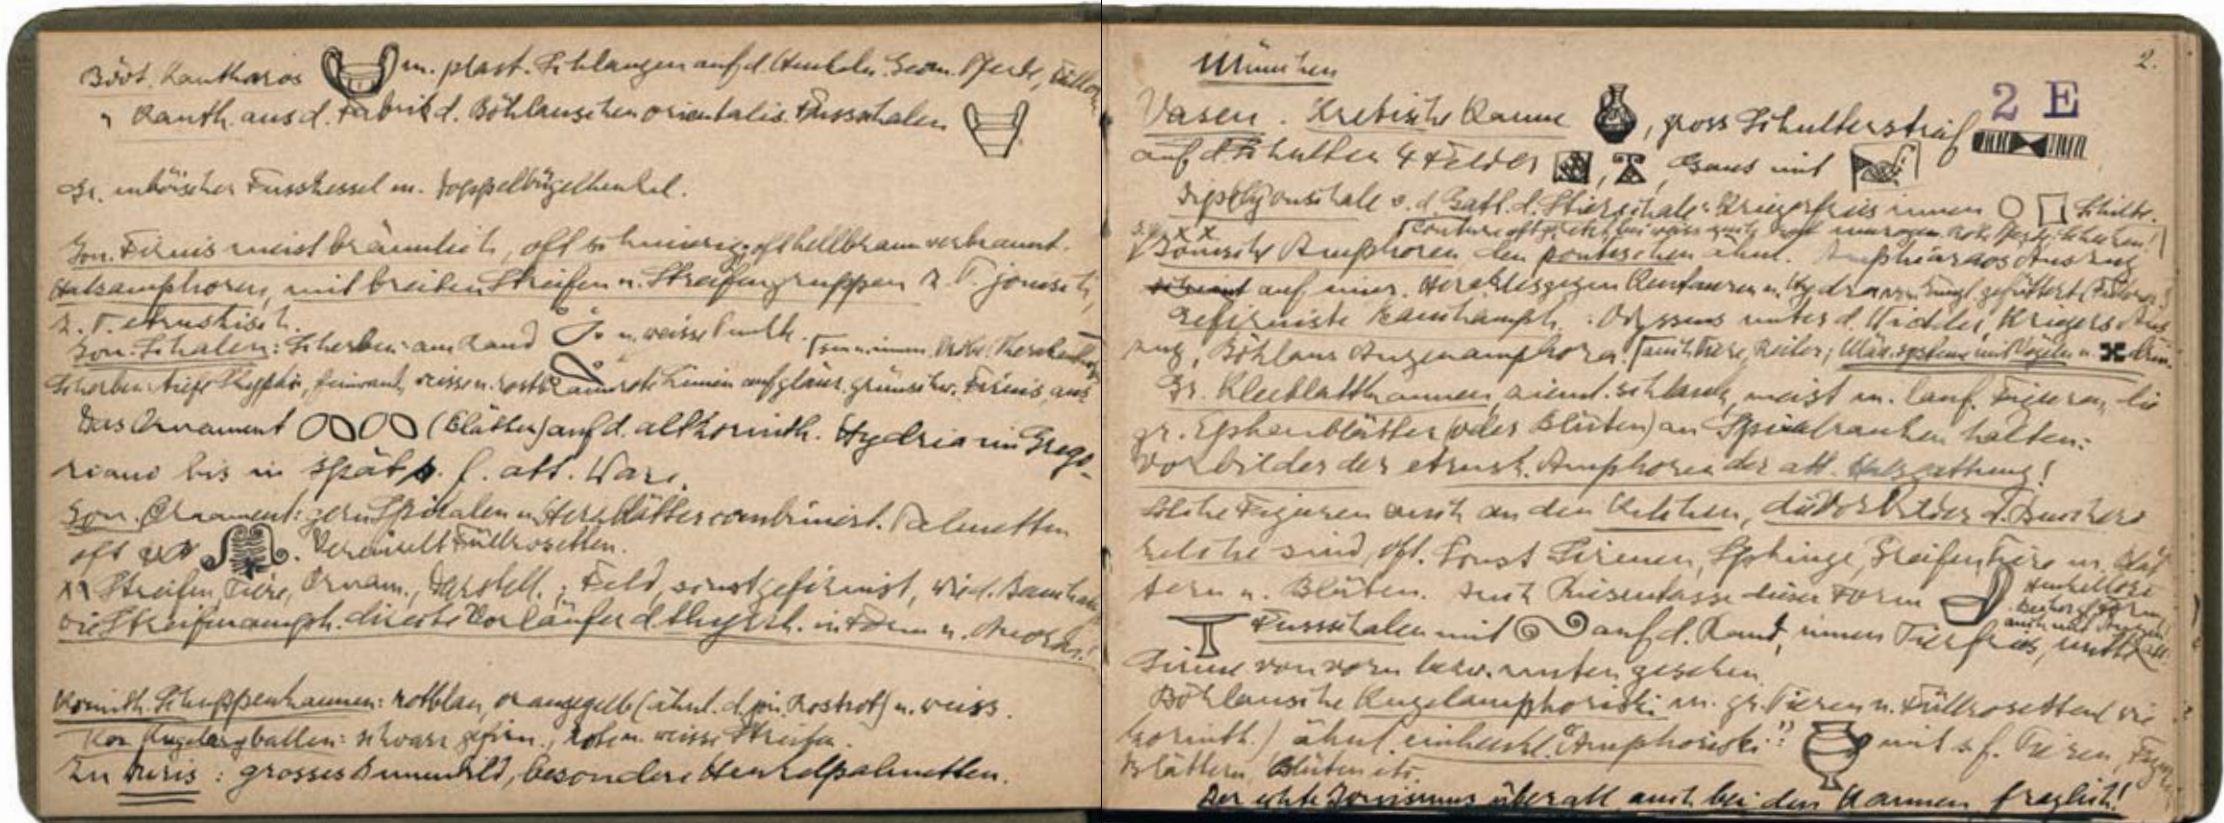 Böot. Kantharos m. plast. Schlangen auf d. Henkeln. Geom. Pferde, Füllorn
" Kanth. aus d. Fabrik d. Böhlauschen orientalis. Fussschalen
Gr. euböischer Fusskessel m. Doppelbügelhenkel.
Jon. Firnis meist bräunlich, oft schmierig, oft hellbraun verbrannt.
Halsamphoren, mit breiten Streifen u. Streifengruppen z. T. jonisch,
z. T. etruskisch.
Jon. Schalen: Scherben: am Rand u. weisse Punkte.
Scherben tiefe Skyphoi, feinwand, weisse u. rostbraunrote Linien auf glänz. grünschw. Firnis, aus
Das Ornament (Blätter) auf d. altkorinth. Hydria im Grego-
riano bis in spät s. f. att. Ware.
Jon. Ornament: gern Spiralen u. Herzblätter combiniert. Palmetten
oft . Vereinzelt Füllrosetten.
Streifen, Tiere, Ornam., Darstell.; Feld, sonst gefirnist, wie d. Bauchamph.
die Streifenamph. direkte Vorläufer d. thyrrh. in Form u. Anordn.!
Korinth. Schuppenkannen: rotblau, orangegelb (ähnl. d. jon. Rostrot) u. weiss.
Kor. Kugelaryballen: schwarz gefirn., rote u. weisse Streifen.
Zu Duris: grosses Innenbild, besondere Henkelpalmetten.
2.
München
2 E
Vasen. Kretische Kanne, gross Schulterstreif
auf d. Schulter 4 Felder , , Gans mit
Dipylonschale v. d. Gatt. d. Stierschale: Kriegerfries innen Schilde.
Conture oft geritzt, bei weiss auch rot umzogen. Rote Pferde
Jonische Amphoren den pontischen ähnl. Amphiaraos Auszug
auf einer. Herakles gegen Kentauren u. Hydra
Gefirniste Bauchamph.: Odysseus unter d. Widder, Kriegers Aus-
zug, Böhlaus Augenamphora, auch Tiere, Reiter; Mäandersysteme mit Vögeln u.
Gr. Kleeblattkannen, ziemL. schlank, meist m. lauf. Figuren, die
gr. Epheublätter (oder Blüten) an Spiralranken halten:
Vorbilder der etrusk. Amphoren der att. Halsgattung!
Solche Figuren auch an den Kelchen, die Vorbilder d. Bucchero
kelche sind, oft. Sonst Sirenen, Sphinge, Greifen Tiere m. Blät-
tern u. Blüten. Auch Riesentasse dieser Form
Fussschalen mit auf d. Rand, innen Tierfries, mittl.
Sirene von vorn bezw. unten gesehen.
Böhlausche Kugelamphoriski m. gr. Tieren u. Füllrosetten (wie
korinth.) ähnl. einhenkl. "Amphoriski"? mit s. f. Tieren,
Blättern, Blüten etc.
Der echte Jonismus überall auch bei den Kannen fraglich!